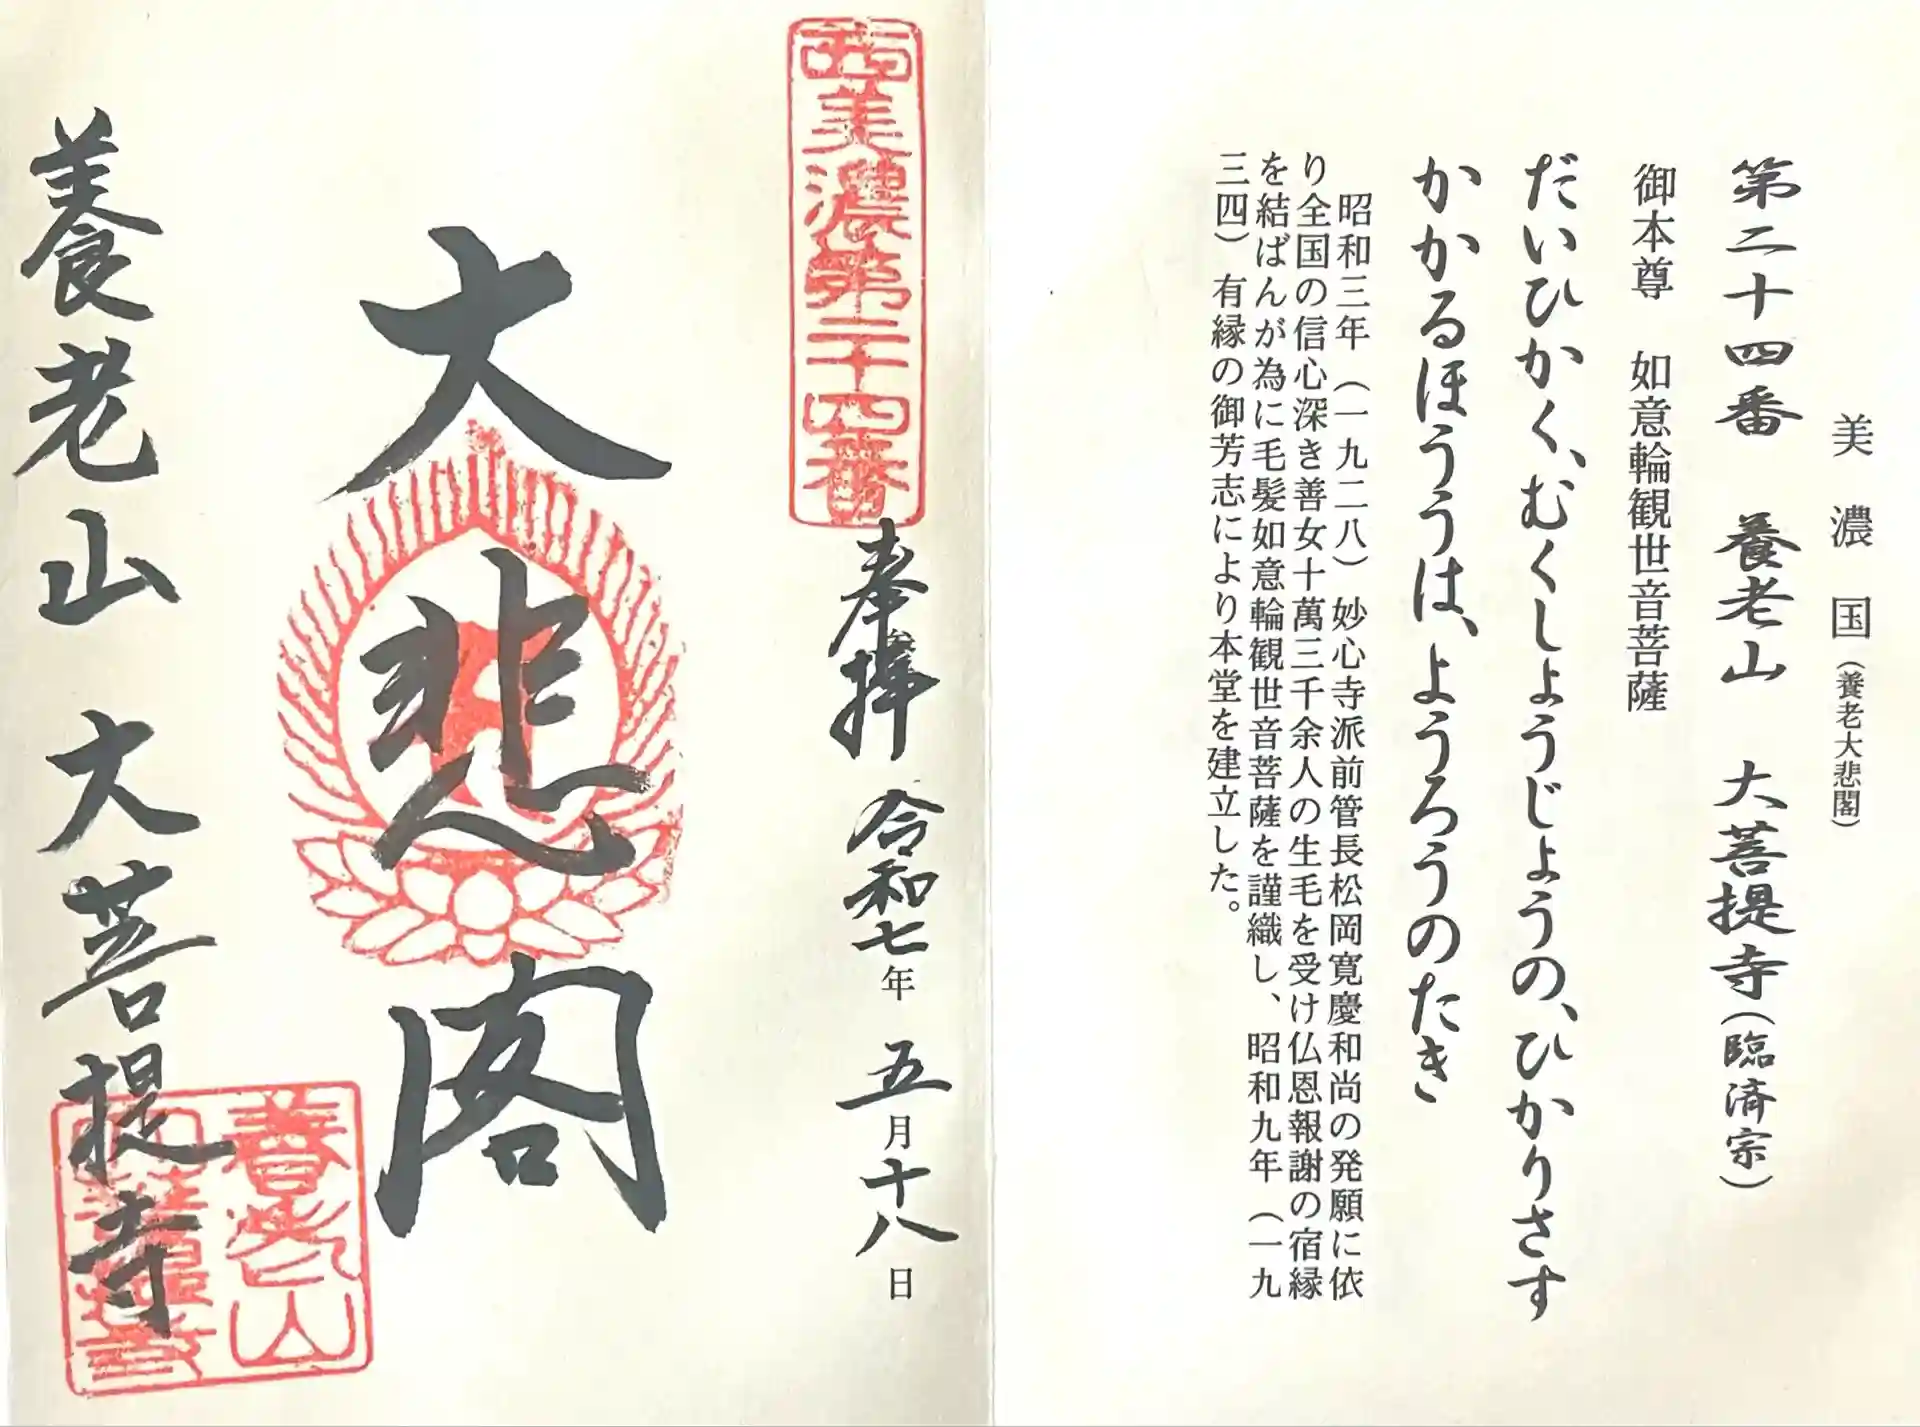 美濃国（養老大悲閣）
第二十四番 養老山 大菩提寺（臨済宗）
御本尊 如意輪観世音菩薩
だいひかく、むくしょうじょうの、ひかりさす
かかるほううは、ようろうのたき
昭和三年（一九二八）妙心寺派前管長松岡寛慶和尚の発願に依
り全国の信心深き善女十萬三千余人の生毛を受け仏恩報謝の宿縁
を結ばんが為に毛髪如意輪観世音菩薩を謹織し、昭和九年（一九
三四）有縁の御芳志により本堂を建立した。
西美濃第二十四番
奉拝 令和七年 五月十八日
大悲閣
養老山 大菩提寺
養老山